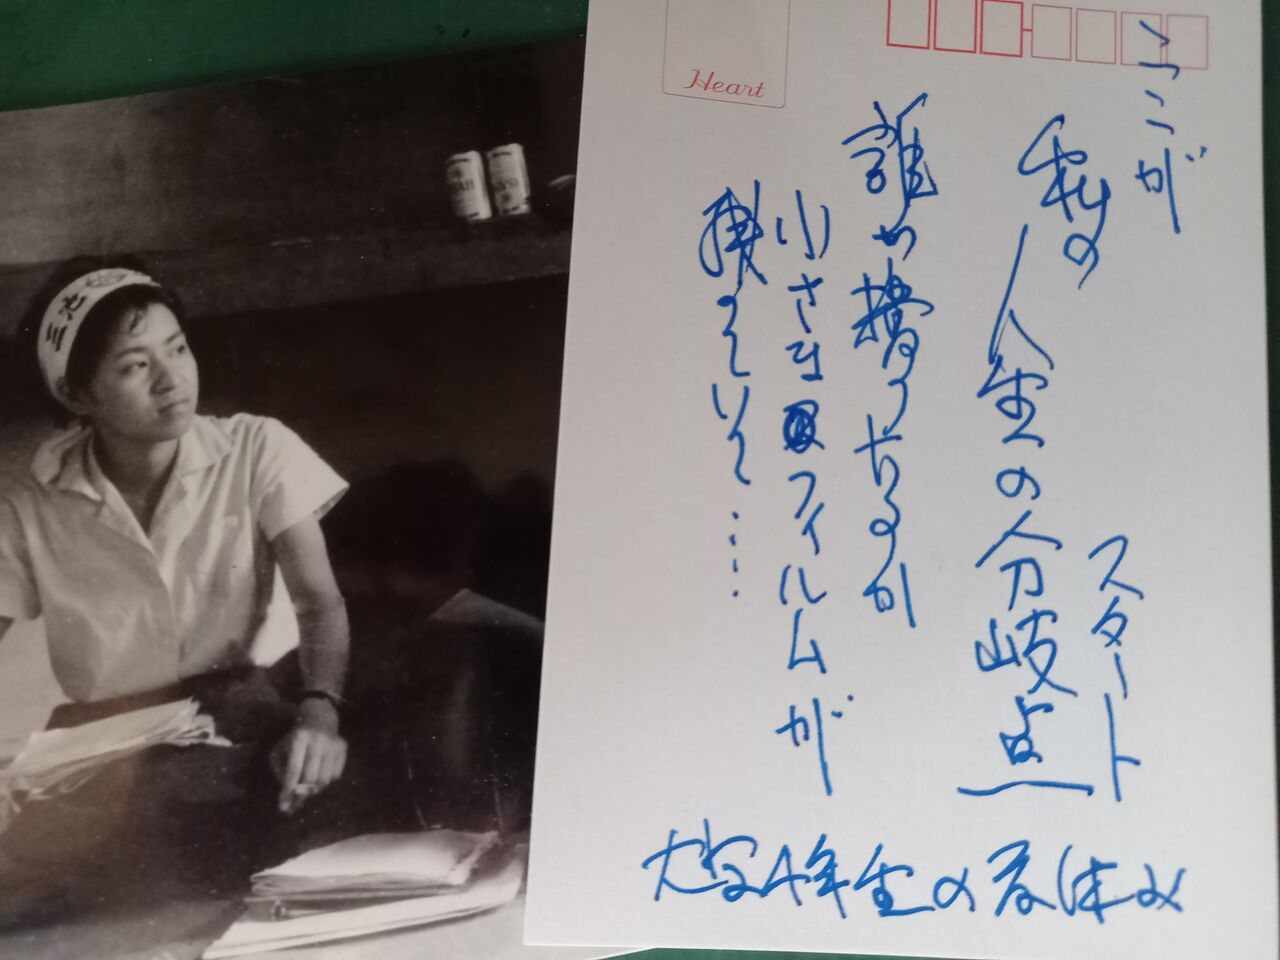 三池
Heart
ここが
私の
人生の分岐点
スタート
誰か撮ったのか
小さなフィルムが
残っていて……
大学4年生の夏休み